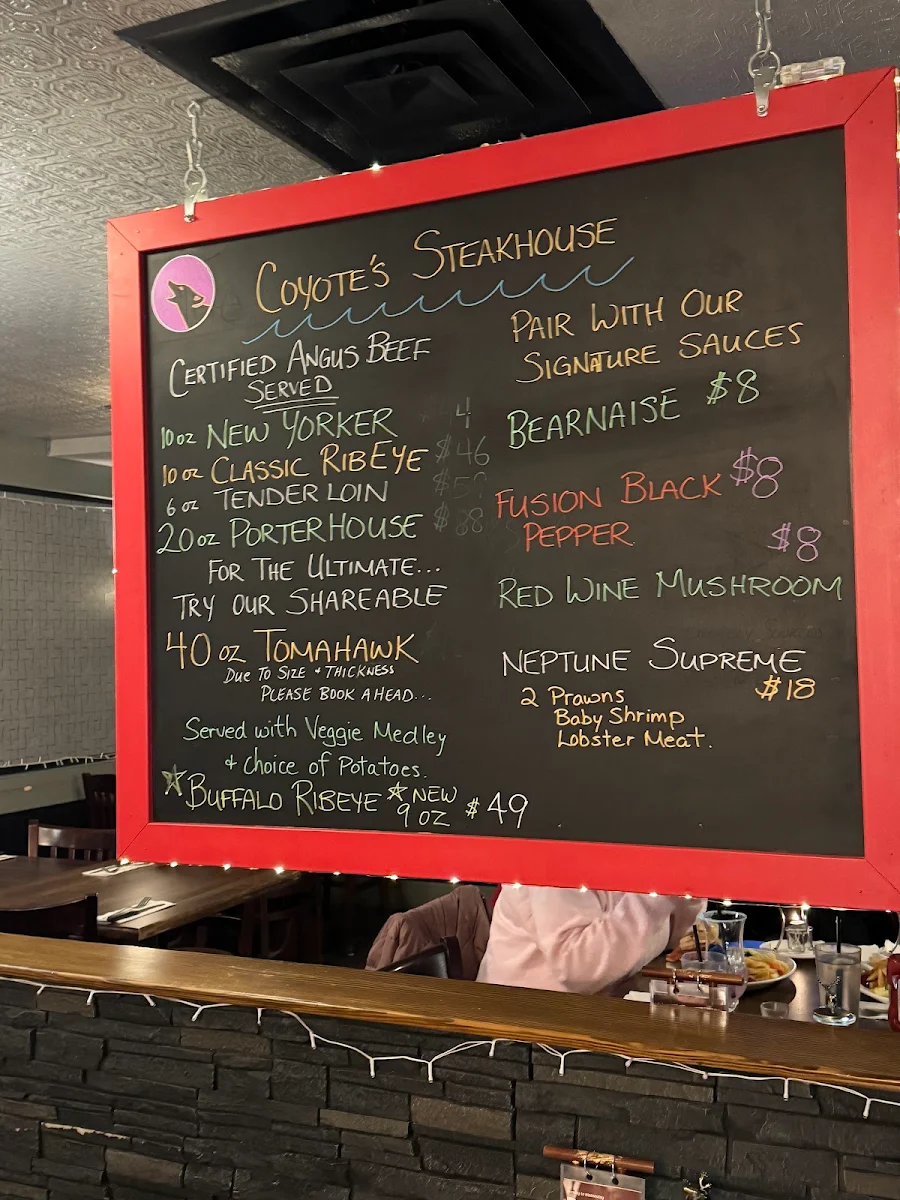 COYOTE'S STEAKHOUSE
CERTIFIED ANGUS BEEF
SERVED
10 oz NEW YORKER
10 oz CLASSIC RIBEYE $46
6 oz TENDERLOIN
20 oz PORTERHOUSE
FOR THE ULTIMATE...
TRY OUR SHAREABLE
40 oz TOMAHAWK
DUE TO SIZE + THICKNESS
PLEASE BOOK AHEAD...
Served with Veggie Medley
+ Choice of Potatoes.
BUFFALO RIBEYE NEW
9 OZ $49
PAIR WITH OUR
SIGNATURE SAUCES
BEARNAISE $8
FUSION BLACK $8
PEPPER
$8
RED WINE MUSHROOM
NEPTUNE SUPREME
$18
2 Prawns
Baby Shrimp
Lobster Meat.